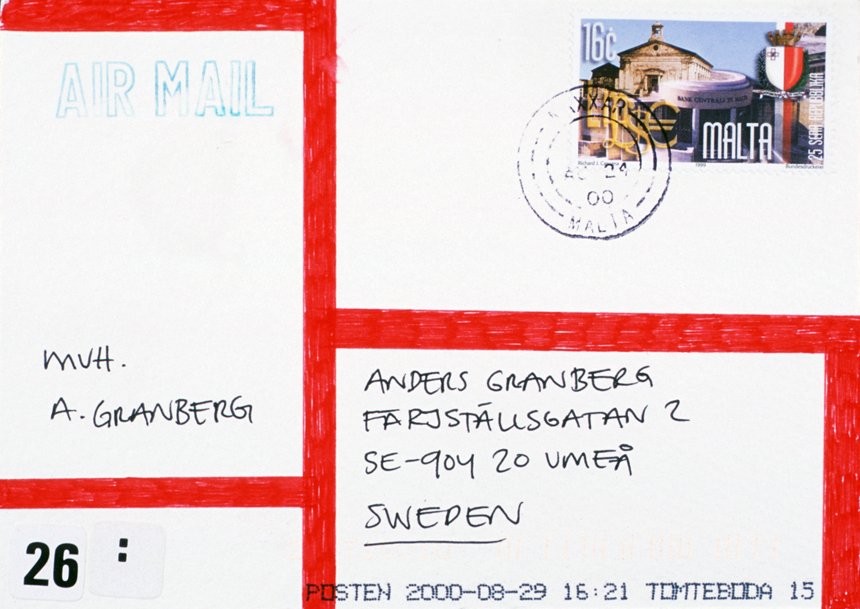 AIR MAIL
16c
BANK ĊENTRALI TA' MALTA
MALTA
25 SENA REPUBBLIKA
1999
AU 24
00
MALTA
MVH.
A. GRANBERG
ANDERS GRANBERG
FÄRJSTÄLLSGATAN 2
SE-904 20 UMEÅ
SWEDEN
26 :
POSTEN 2000-08-29 16:21 TOMTEBODA 15